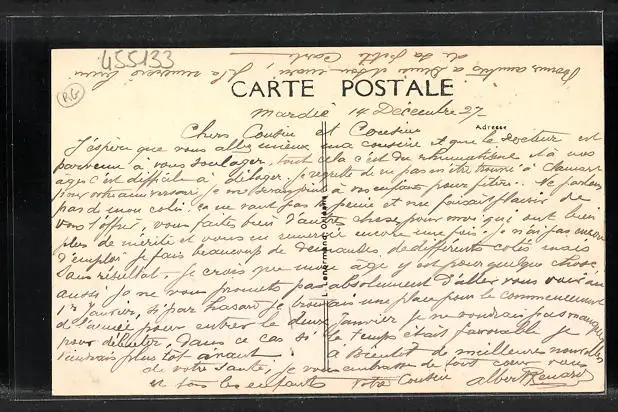 455133
RG
Bonne amitié à
de sa petite Carte
CARTE POSTALE
Mardie 14 Décembre 27
Adresse
Chers Cousin et Cousine
J'espère que vous allez mieux ma cousine et que le Docteur est
parvenu à vous soulager, tout cela c'est du rhumatisme et à nos
âges c'est difficile à déloger. je regrette de ne pas m'être trouvé à Clamart
pour votre anniversaire, je me serais joint à vos enfants pour fêter. Ne parlons
pas de mon colis. ça ne vaut pas la peine et me faisait plaisir de
vous l'offrir, vous faites bien d'autres chose pour moi qui ont bien
plus de mérite et vous en remercie encore une fois. Je n'ai pas encore
d'emploi je fais beaucoup de demandes de différents cotés mais
sans résultat. Je crois que mon âge y est pour quelque chose,
aussi je ne vous promets pas absolument d'aller vous voir au
1er Janvier, si par hasard je trouvais une place pour le commencement
de l'année pour entrer le deux Janvier je ne voudrais pas manquer
pour débuter, dans ce cas si le temps était favorable je
l'aurais plus tôt avant à Bientôt de meilleures nouvelles
de votre santé, je vous embrasse de tout cœur vous
et tous les enfants votre Cousin Albert Renard
L. Lenormand, Orléans